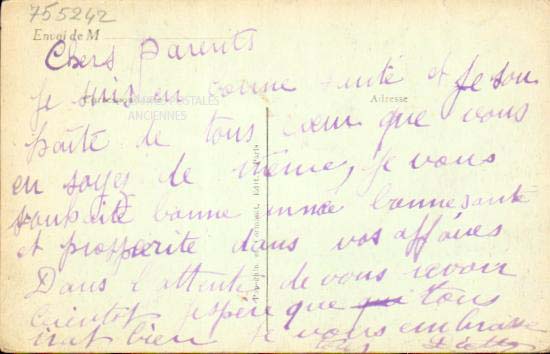 755242
Envoi de M
Chers Parents
Je suis en bonne santé et je sou
Adresse
CARTES POSTALES
ANCIENNES
haite de tous cœur que vous
en soyez de même, je vous
souhaite bonne année bonne sante
et prosperite dans vos affaires
Dans l'attente de vous revoir
bientot j'espère que tous
irat bien je vous embrasse